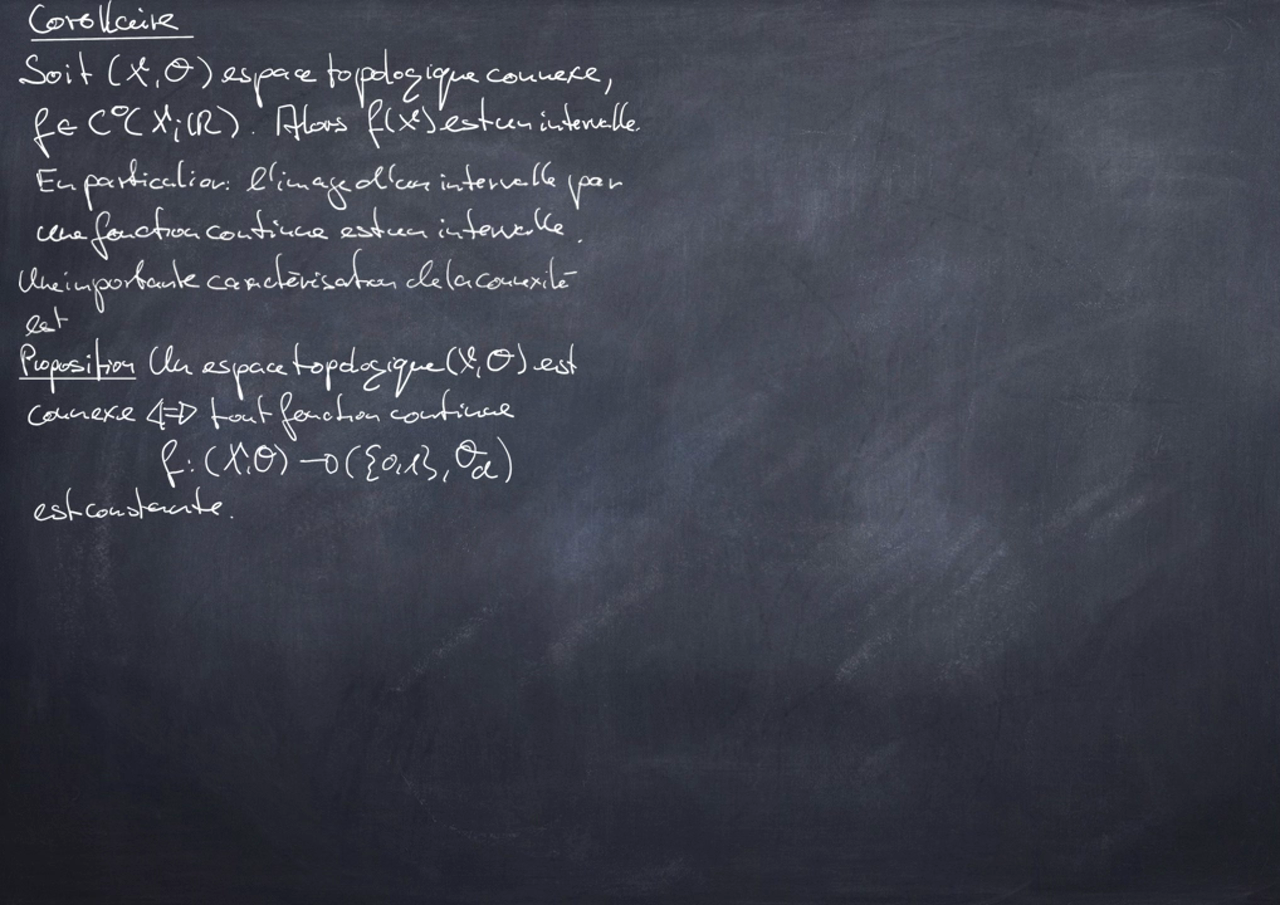 Corollaire
Soit (X, O) espace topologique connexe,
f ∈ C⁰(X; ℝ). Alors f(X) est un intervalle.
En particulier: l'image d'un intervalle par
une fonction continue est un intervalle.
Une importante caractérisation de la connexité
est
Proposition Un espace topologique (X, O) est
connexe ⇔ tout fonction continue
f: (X, O) → ({0,1}, O_d)
est constante.